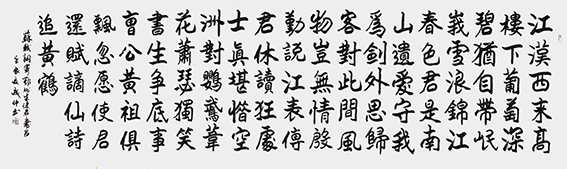 江漢西來高
樓下葡萄深
碧猶自帶岷
峩雪浪錦江
春色君是南
山遺愛守我
爲劍外思歸
客對此間風
物豈無情殷
勤說江表傳
君休讀狂處
士眞堪惜空
洲對鸚鵡葦
花蕭瑟獨笑
書生爭底事
曹公黃祖俱
飄忽願使君
還賦謫仙詩
追黃鶴
蘇軾詞寄鄂州朱使君壽昌